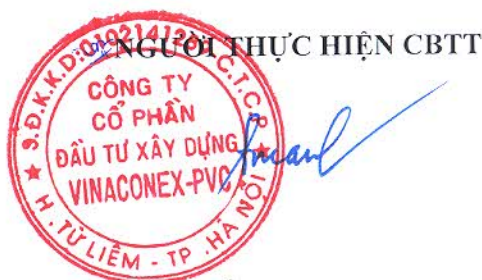 NGƯỜI THỰC HIỆN CBTT
S.Đ.K.K.D:
C.T.C.P
CÔNG TY
CỔ PHẦN
ĐẦU TƯ XÂY DỰNG
VINACONEX-PVC
H. TỪ LIÊM - TP. HÀ NỘI